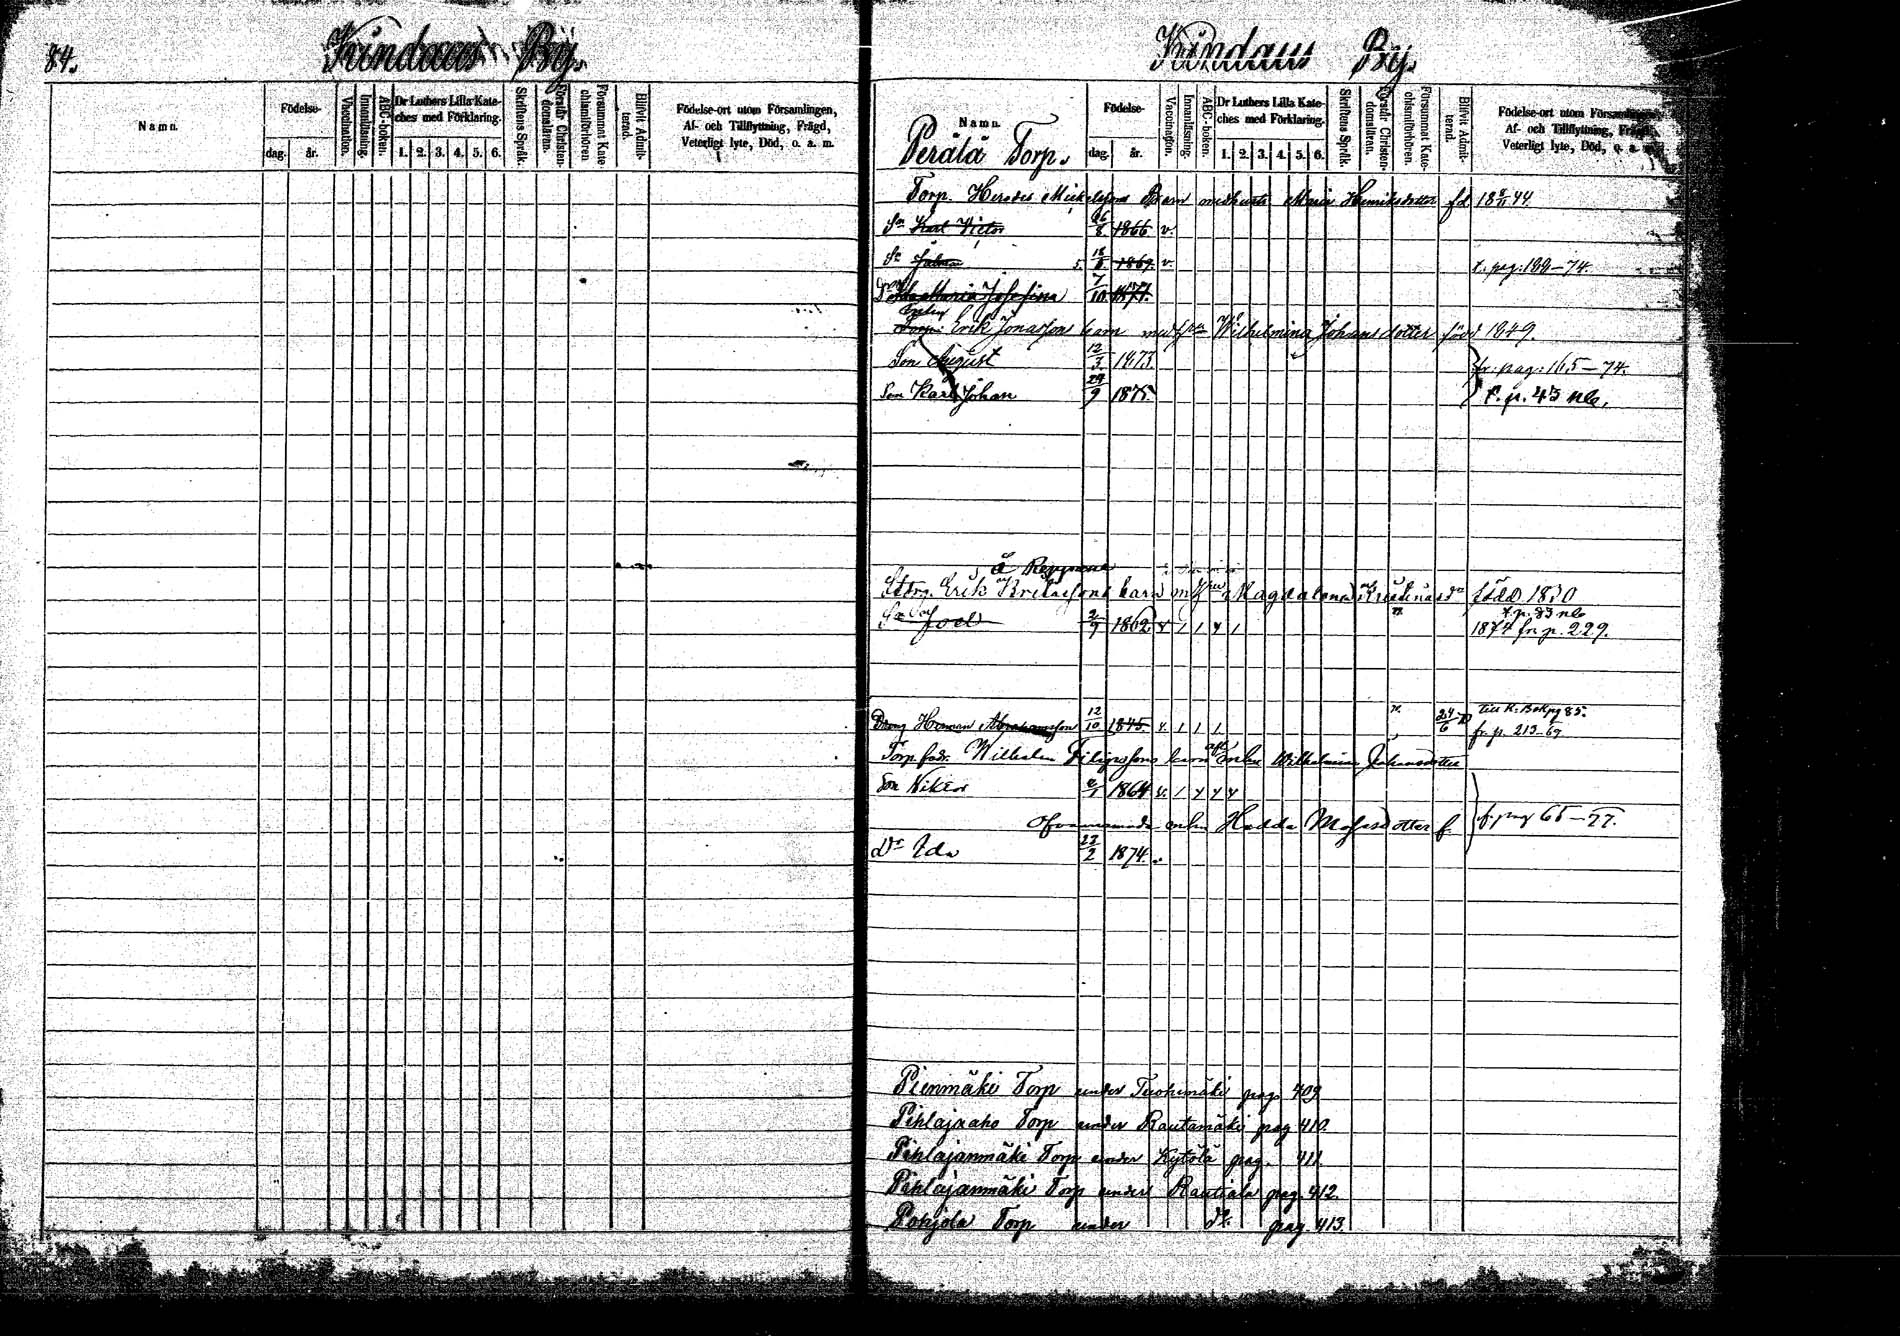 84.
Kuudaus By.
Namn.
Födelse-
dag. år.
Vaccination.
Innanläsning.
ABC-boken.
Dr Luthers Lilla Kate-
ches med Förklaring.
1. 2. 3. 4. 5. 6.
Skriftens Språk.
Förstår Christen-
domsläran.
Försummat Kate-
chismiförhören.
Blifvit Admit-
terad.
Födelse-ort utom Församlingen,
Af- och Tillflyttning, Frägd,
Veterligt lyte, Död, o. a. m.
Kuudaus By.
Namn.
Perälä Torp.
Födelse-
dag. år.
Vaccination.
Innanläsning.
ABC-boken.
Dr Luthers Lilla Kate-
ches med Förklaring.
1. 2. 3. 4. 5. 6.
Skriftens Språk.
Förstår Christen-
domsläran.
Försummat Kate-
chismiförhören.
Blifvit Admit-
terad.
Födelse-ort utom Församlingen,
Af- och Tillflyttning, Frägd,
Veterligt lyte, Död, o. a. m.
Torp. Herodes Mickelssons Barn med hustr. Maria Henriksdotter fd 18 8/11 44.
Sn Karl Victor 26/8 1866 v.
Sn 18 1869. v. t. pag: 199–74.
Maria Josefina 7/10 1871.
Erik Jonassons barn med hru Wilhelmina Johansdotter född 1849.
Son August 12/3 1873 fr. pag: 165–74.
Son Karl Johan 29/9 1875 t. p. 43 nb.
Erik Erikssons barn m hru Magdalena född 1830
Sn Joel 2/9 1862 t. p. 83 nb
1874 fr. p. 229.
Dreng Herman Abrahamsson 12/10 1845. v. 1 1 1 24/6 till K. Bok pg 85.
fr. p. 213–69
Torp. Wilhelm Filipssons barn med enkn Wilhelmina Johansdotter
Son Viktor 1864 v.
Ofvannämnda enkn Hedda Mosesdotter f. fr. pag 65–77.
Dr Ida 22/2 1874.
Pienmäki Torp under Tuohimäki pag. 409.
Pihlajaaho Torp under Rautamäki pag 410.
Pihlajanmäki Torp under Kytölä pag. 411.
Pihlajanmäki Torp under Rautiala pag. 412.
Pohjola Torp under do. pag. 413.